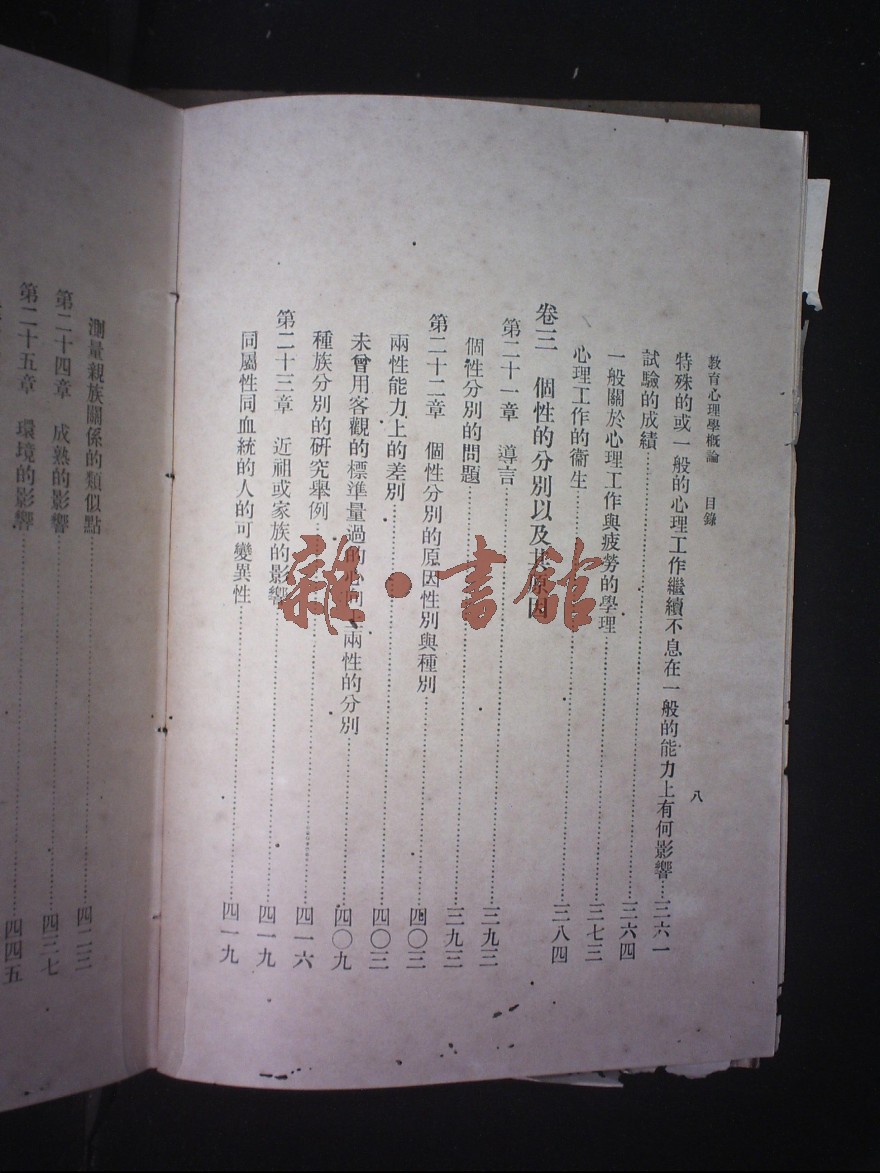 教育心理學概論　目錄　八
特殊的或一般的心理工作繼續不息在一般的能力上有何影響……三六一
試驗的成績……三六四
一般關於心理工作與疲勞的學理……三七三
心理工作的衞生……三八四
卷三　個性的分別以及其原因
第二十一章　導言……三九三
個性分別的問題……三九三
第二十二章　個性分別的原因性別與種別……四〇三
兩性能力上的差別……四〇三
未曾用客觀的標準量過的心 兩性的分別……四〇九
種族分別的研究舉例……四一六
第二十三章　近祖或家族的影響……四一九
同屬性同血統的人的可變異性……四一九
測量親族關係的類似點……四二三
第二十四章　成熟的影響……四三七
第二十五章　環境的影響……四四五
雜·書館